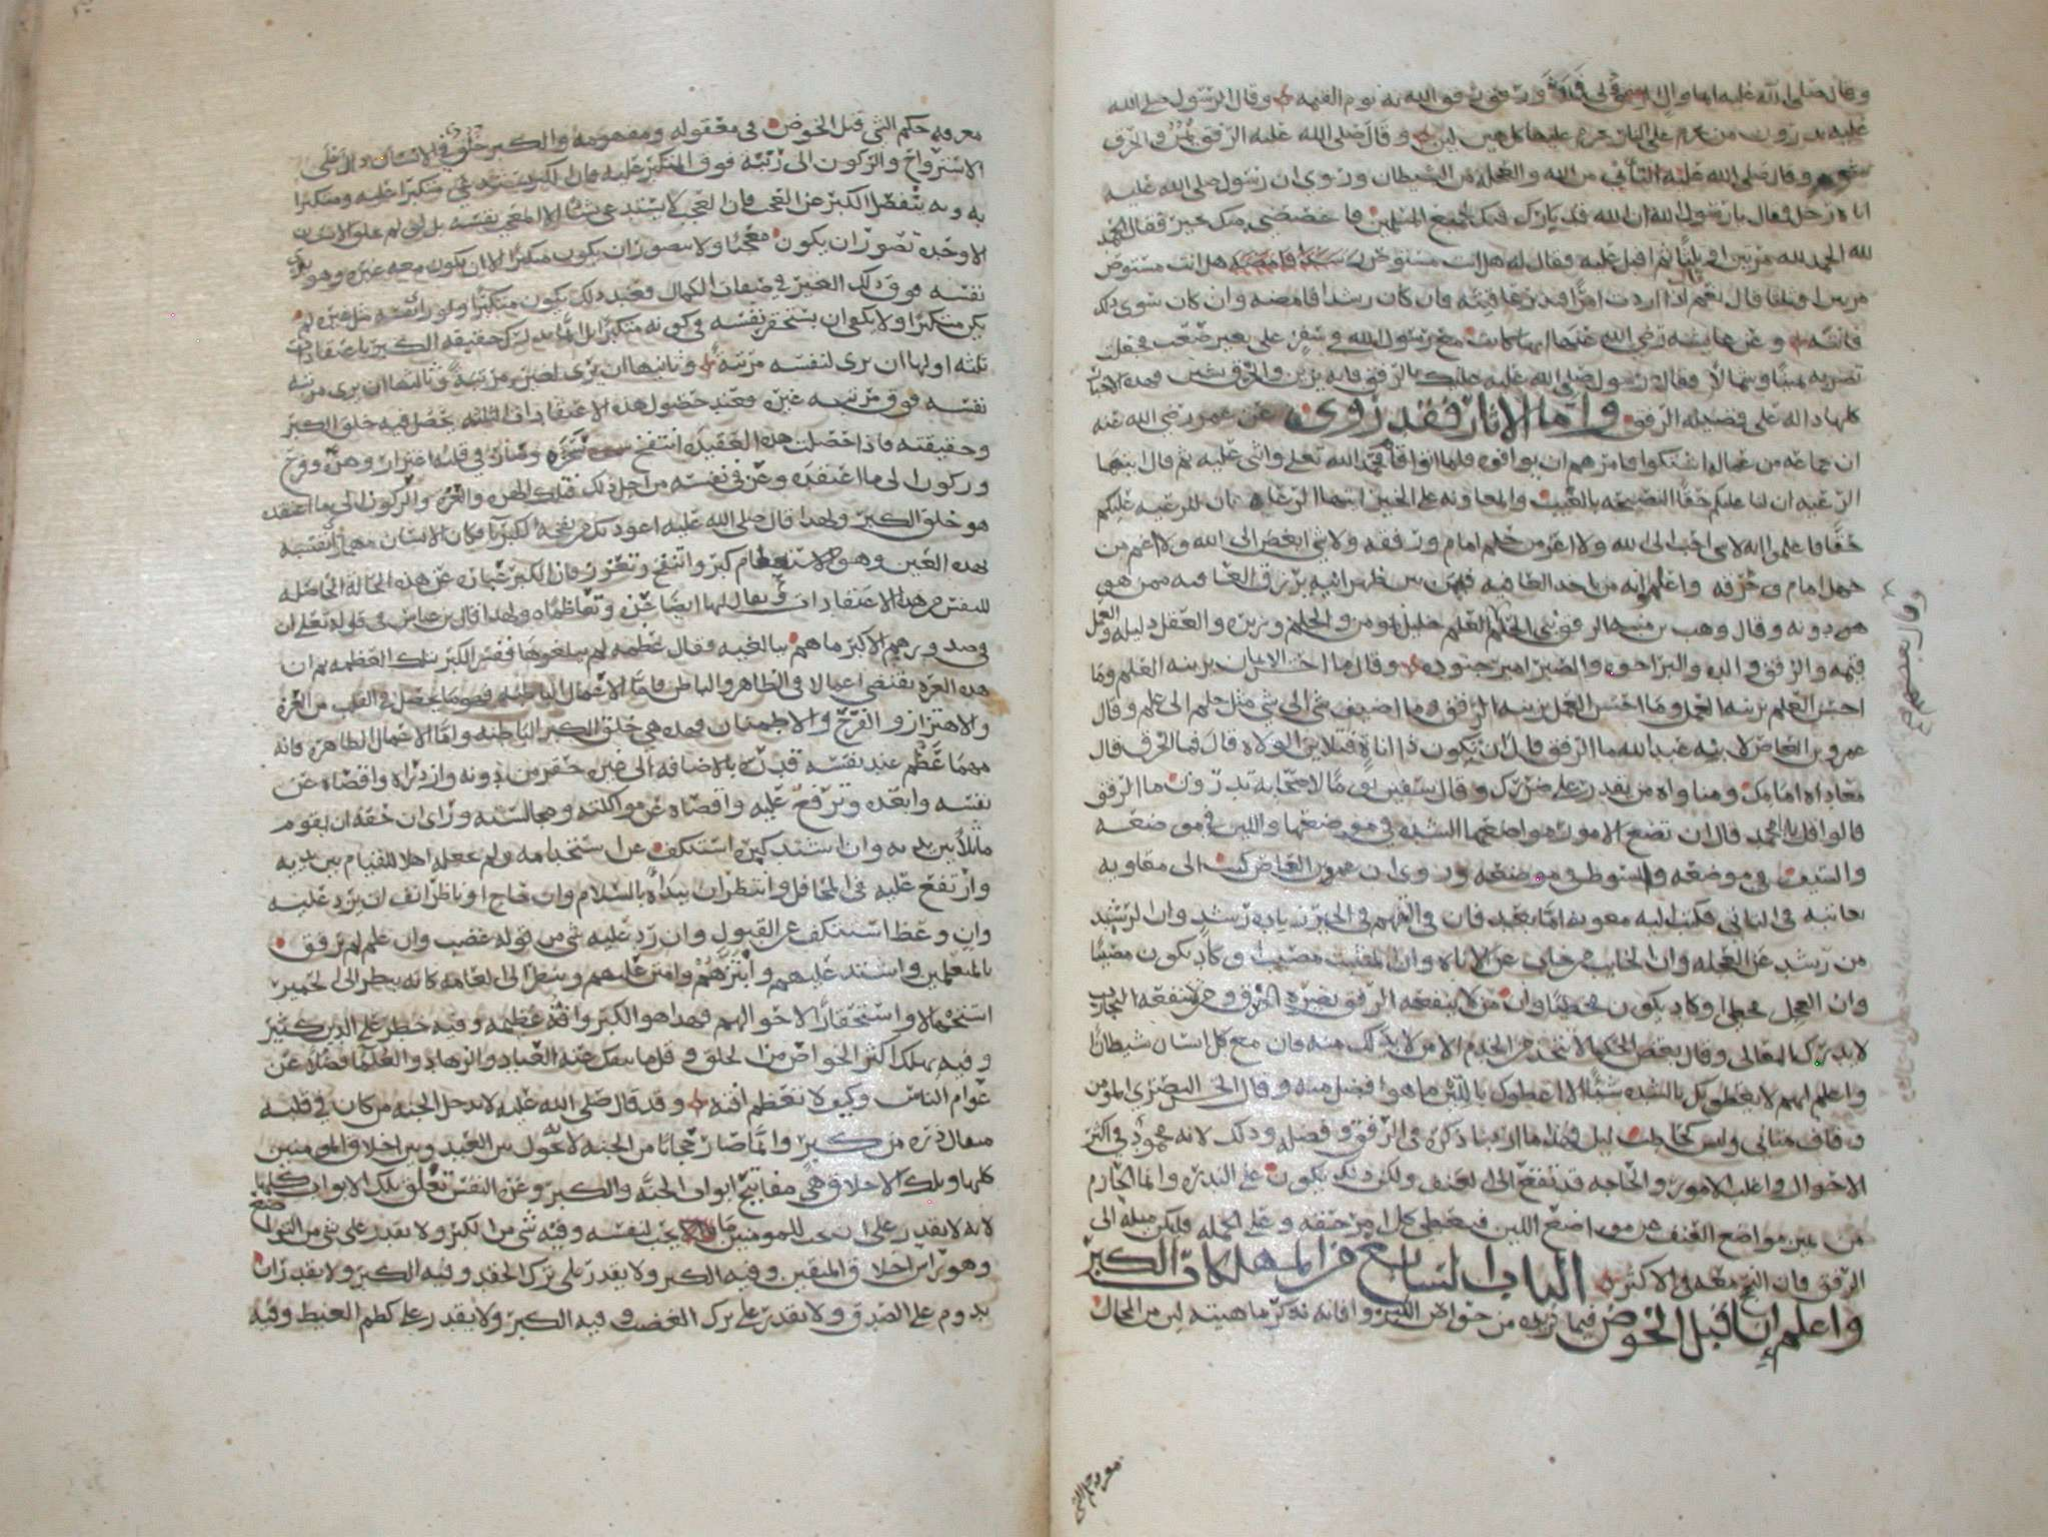 وقال صلى الله عليه ايما وال ولي فرفق ورفق رفق الله به يوم القيمه وقال الرسول صلى الله
عليه تدرون من حرم على النار حرم عليها كل هين لين وقال صلى الله عليه الرفق يمن والخرق
شوم وقال صلى الله عليه التأني من الله والعجله من الشيطان وروى ان رسول صلى الله عليه
اتاه رجل فقال يا رسول الله ان الله قد بارك فيك لجميع المسلمين فاخصصني منك بخير فقال الحمد
لله الحمد لله مرتين او ثلثا ثم اقبل عليه فقال له هل انت مستوص هل انت مستوص
مرتين او ثلثا قال نعم اذا اردت امرا فتدبر عاقبته فان كان رشدا فامضه وان كان سوى ذلك
فانته وعن عايشه رضي الله عنها انها كانت مع رسول الله في سفر على بعير صعب فجعلت
تصرفه يمينا وشمالا فقال رسول صلى الله عليه عليك بالرفق فانه فهذه الاخبار
كلها داله على فضيله الرفق واما الاثار فقد روى عن عمر رضي الله عنه
ان جماعه من عماله اشتكوا فامرهم ان يوافوه فلما اتوا قام فحمد الله تعلى واثنى عليه ثم قال ايتها
الرعيه ان لنا عليكم حقا النصيحه بالغيب والمعاونه على الخير ايتها الرعاه ان للرعيه عليكم
حقا فاعلموا انه لا شي احب الى الله ولا اعز من حلم امام ورفقه ولا شي ابغض الى الله ولا اعم من
جهل امام وخرقه واعلموا انه من ياخذ العافيه فيمن بين ظهرانيه يرزق العافيه ممن هو
دونه وقال وهب بن منبه الرفق بني الحلم العلم خليل المومن والحلم وزيره والعقل دليله والعمل
قيمه والرفق والده والبر اخوه والصبر امير جنوده وقال ما احسن الايمان يزينه العلم وما
احسن العلم يزينه العمل وما احسن العمل يزينه الرفق وما اضيف شي الى شي مثل حلم الى علم وقال
عمرو بن العاص لابنه عبد الله ما الرفق قال ان تكون ذا اناة فتلاين الولاه قال فما الخرق قال
معاداه امامك ومناواه من يقدر على ضررك وقال سفين يوما لاصحابه تدرون ما الرفق
قالوا قل يا ابا محمد قال ان تضع الامور مواضعها الشده في موضعها واللين في موضعه
والسيف في موضعه والسوط في موضعه وروى ان عمرو بن العاص كتب الى معاويه
يعاتبه في التاني فكتب اليه معويه اما بعد فان التفهم في الخير زياده رشد وان الرشيد
من رشد عن العجله وان الخايب من خاب عن الاناه وان المتثبت مصيب او كاد يكون مصيبا
وان العجل مخطي او كاد يكون مخطيا وان من لا ينفعه الرفق يضره الخرق ومن لا تنفعه التجارب
لا يدرك المعالي وقال بعض الحكما
واعلم انهم لا يعطونك بالشده شيئا الا اعطوك باللين ما هو افضل منه وقال الحسن البصري المومن
وقاف متاني وليس كحاطب ليل فهذا ما اردنا ذكره في الرفق وفضله وذلك لانه محمود في اكثر
الاحوال واغلب الامور والحاجه قد تقع الى العنف ولكن ذلك يكون على الندره وانما الحازم
من يميز مواضع العنف من مواضع اللين فيعطى كل امر حقه وعلى الجمله فليكن ميله الى
الرفق فان النجح معه في الاكثر الباب السابع من المهلكات الكبر
واعلم انا قبل الخوض فيما نريده من خواص الكبر وافاته نذكر ماهيته لان من المحال
معرفه حكم الشي
معرفه حكم الشي قبل الخوض في معقوله ومفهومه والكبر خلق في الانسان
الاسترواح والركون الى رتبة فوق المتكبر عليه فان الكبر يستدعي متكبرا عليه ومتكبرا
به وبه ينفصل الكبر عن العجب فان العجب لا يستدعي شيا الا المعجب نفسه بل لو لم يخلق الانسان
الا وحده تصور ان يكون معجبا ولا يتصور ان يكون متكبرا الا ان يكون معه غيره وهو يرى
نفسه فوق ذلك الغير في صفات الكمال فعند ذلك يكون متكبرا ولو راى نفسه مثل غيره لم
يكن متكبرا ولا يكفي ان يستحقر نفسه في كونه متكبرا بل انما تدرك حقيقه الكبر باعتقادات
ثلثه اولها ان يرى لنفسه مرتبة وثانيها ان يرى لغيره مرتبة وثالثها ان يرى مرتبه
نفسه فوق مرتبه غيره فعند حصول هذه الاعتقادات الثلثه يحصل فيه خلق الكبر
وحقيقته فاذا حصلت هذه العقيده انتفخ سحره وصار في قلبه اعتزاز وهزه وفرح
وركون الى ما اعتقده وعز في نفسه من اجل ذلك فتلك الهزه والعزه والركون الى ما اعتقده
هو خلق الكبر ولهذا قال صلى الله عليه اعوذ بك من نفخه الكبريا فكان الانسان مهما راى نفسه
بهذه العين وهو الاستعظام كبر وانتفخ وتعزز فان الكبر عباره عن هذه الحالة الحاصله
للنفس من هذه الاعتقادات ويقال لها ايضا عزه وتعاظما ولهذا قال بن عباس في قوله تعلى ان
في صدورهم الا كبر ما هم ببالغيه وقال عظمه لم يبلغوها ففسر الكبر بتلك العظمه ثم ان
هذه العزه تقتضي اعمالا في الظاهر والباطن فاما الاعمال الباطنه فهو ما يحصل في القلب من العزه
والاهتزاز والفرح والاطمنان فهذه هي خلق الكبر الباطنه واما الاعمال الظاهره فانه
مهما عظم عند نفسه قدره بالاضافه الى غيره حقر من دونه وازدراه واقصاه عن
نفسه وابعده وترفع عليه واقصاه عن مواكلته ومجالسته وراى ان حقه ان يقوم
ماثلا بين يديه وان اشتد كبره استنكف عن استخدامه ولم يجعله اهلا للقيام بين يديه
وارتفع عليه في المحافل وانتظر ان يبداه بالسلام وان حاج او ناظر انف ان يرد عليه
وان وعظ استنكف عن القبول وان رد عليه شي من قوله غضب وان علم لم يرفق
بالمتعلمين واشتد عليهم وانتهرهم وامتن عليهم وينظر الى العامه كانه ينظر الى الحمير
استجهالا واستحقارا لاحوالهم فهذا هو الكبر وافته عظيمه وفيه خطر على الدين كثير
وفيه يهلك اكثر الخواص من الخلق وقلما ينفك عنه العباد والزهاد والعلما فضلا عن
عوام الناس وكيف لا تعظم افته وقد قال صلى الله عليه لا يدخل الجنه من كان في قلبه
مثقال ذره من كبر وانما صار حجابا من الجنه لانه يحول بين العبد وبين اخلاق المومنين
كلها وتلك الاخلاق هي مفاتيح ابواب الجنة والكبر وعز النفس تغلق تلك الابواب كلها
لانه لا يقدر على ان يحب للمومنين ما يحب لنفسه وفيه شي من الكبر ولا يقدر على شي من التواضع
وهو راس اخلاق المتقين وفيه الكبر ولا يقدر على ترك الحقد وفيه الكبر ولا يقدر ان
يدوم على الصدق ولا يقدر على ترك الغضب وفيه الكبر ولا يقدر على كظم الغيظ وفيه